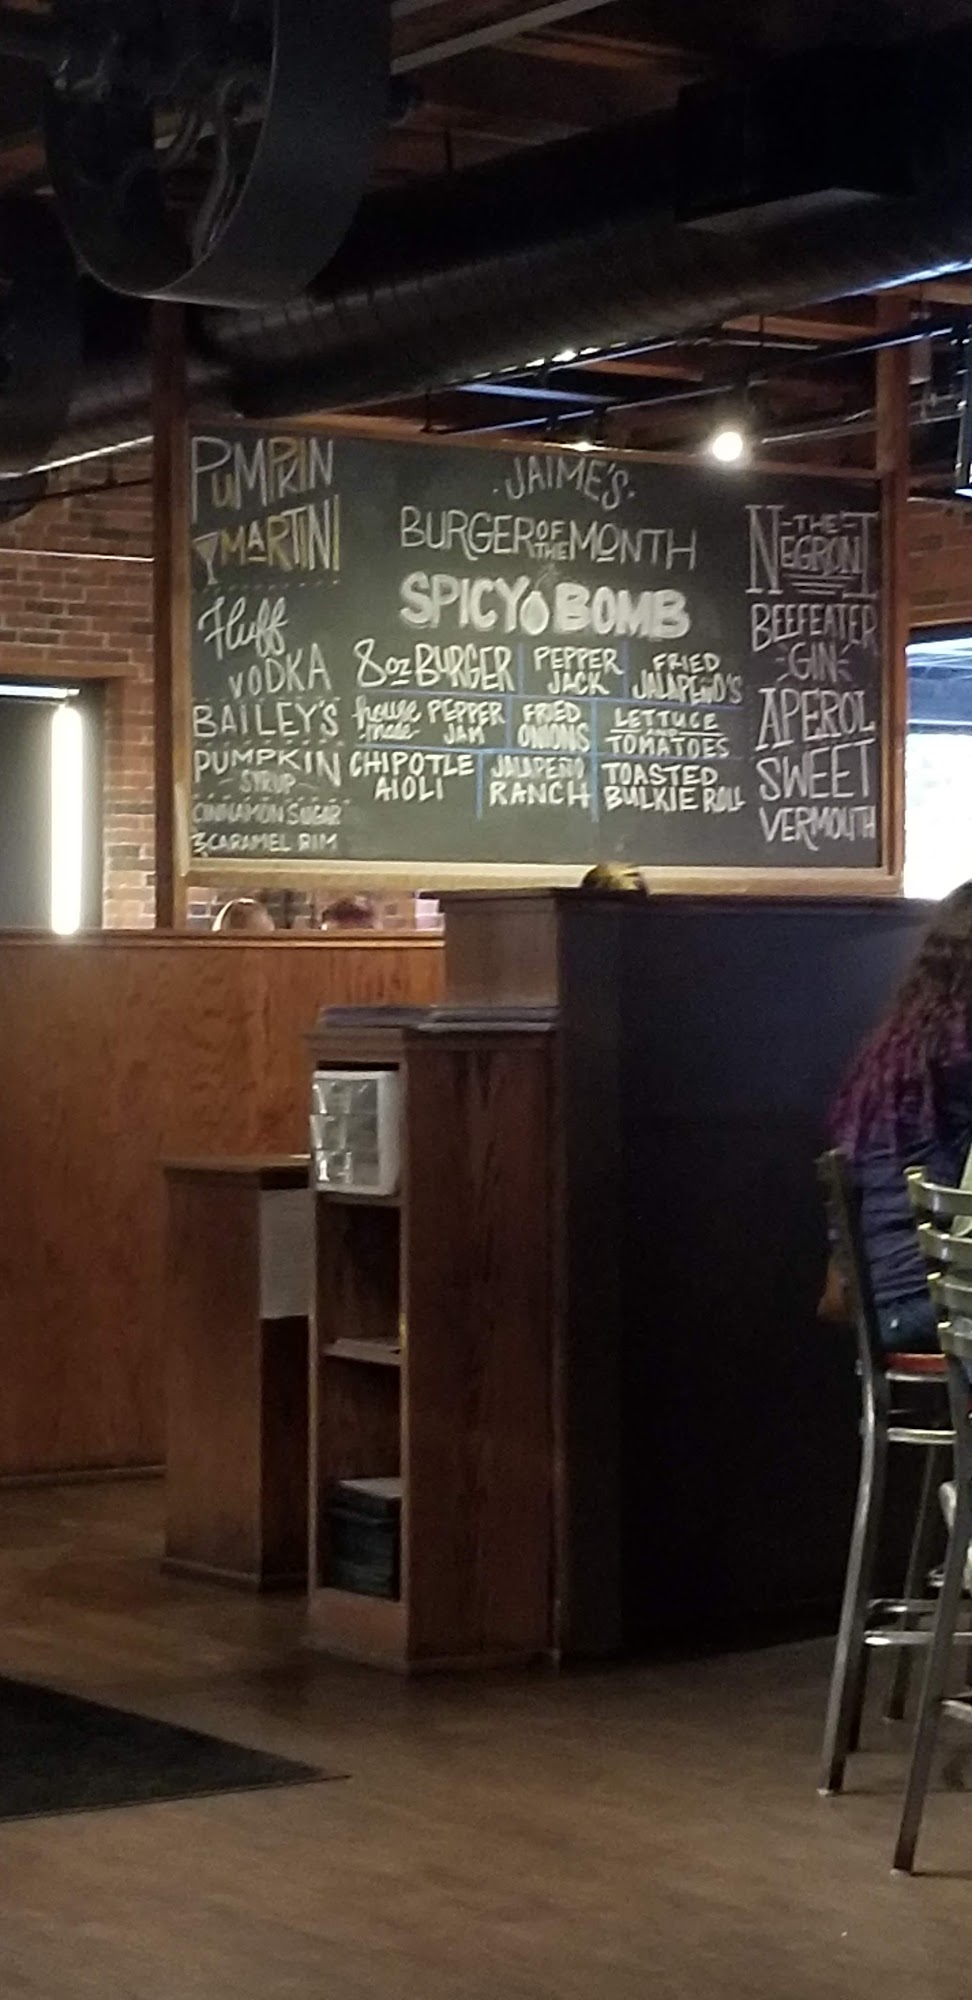 PUMPKIN
MARTINI
Fluff
VODKA
BAILEY'S
PUMPKIN
SYRUP
CINNAMON SUGAR
& CARAMEL RIM
JAIME'S
BURGER OF THE MONTH
SPICY BOMB
8oz BURGER
PEPPER
JACK
FRIED
JALAPEÑO'S
house made PEPPER
JAM
FRIED
ONIONS
LETTUCE
AND
TOMATOES
CHIPOTLE
AIOLI
JALAPEÑO
RANCH
TOASTED
BULKIE ROLL
-THE-
NEGRONI
BEEFEATER
GIN
APEROL
SWEET
VERMOUTH